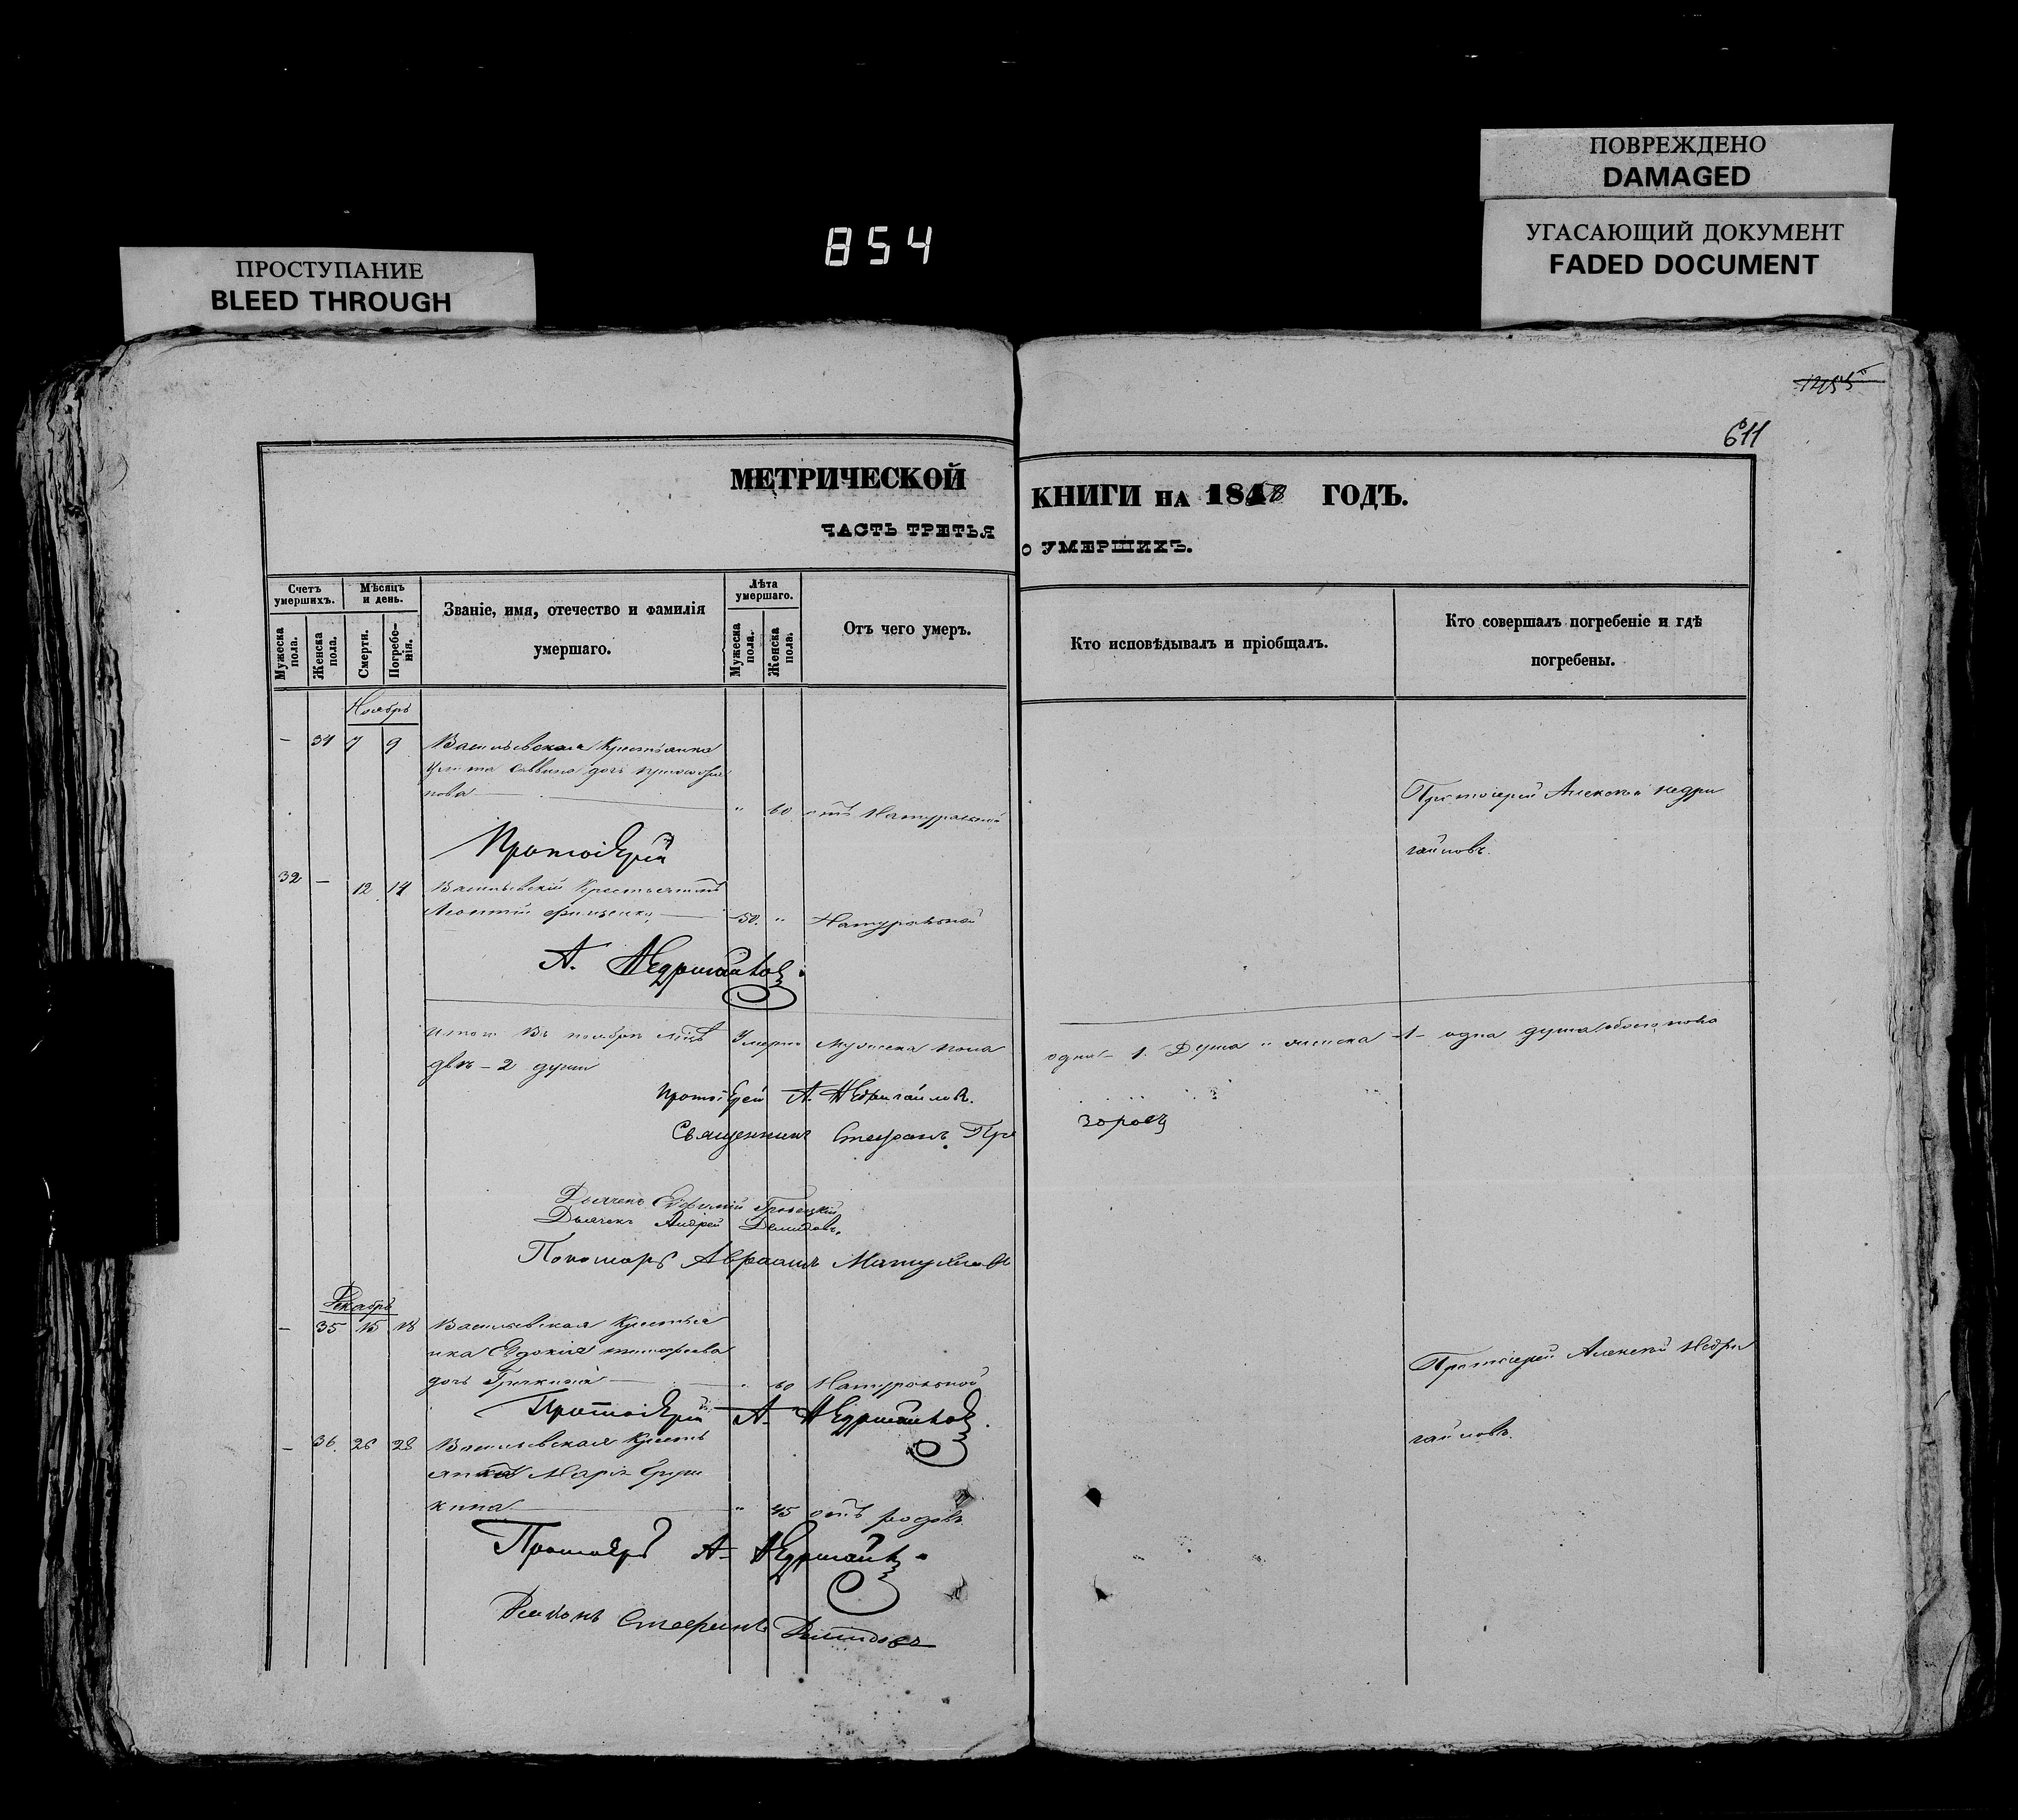 ПОВРЕЖДЕНО
DAMAGED
УГАСАЮЩИЙ ДОКУМЕНТ
FADED DOCUMENT
854
ПРОСТУПАНИЕ
BLEED THROUGH
1255
611
МЕТРИЧЕСКОЙ КНИГИ НА 1858 ГОДЪ.
ЧАСТЬ ТРЕТЬЯ О УМЕРШИХЪ.
Счетъ умершихъ.
Мужеска пола.
Женска пола.
Мѣсяцъ и день.
Смерти.
Погребе-нія.
Званіе, имя, отечество и фамилія
умершаго.
Лѣта умершаго.
Мужеска пола.
Женска пола.
Отъ чего умеръ.
Кто исповѣдывалъ и пріобщалъ.
Кто совершалъ погребеніе и гдѣ
погребены.
Ноябрь
– 34 7 9 Васильевская Крестьянка
Улита Саввина дочь
нова " 60 отъ Натуральной
Протоіерей Алексѣй Недри
гайловъ.
Протоіерей
32 – 12 14 Васильевскій Крестьянинъ
Леонтій 50. " Натуральной
А. Недригайловъ
Итого Въ ноябрѣ Умерло Мужеска пола одна – 1. Душа и женска – 1 – одна душа обоего пола
двѣ – 2 души
Протоіерей А. Недригайловъ.
Священникъ Стефанъ Про зоров
Дьячекъ Евфимій
Дьячекъ Андрей Демидовъ.
Пономарь Авраамъ
Декабрь
– 35 15 18 Васильевская Крестья
нка Евдокия Тимофеева
дочь " 60 Натуральной
Протоіерей Алексѣй Недри
гайловъ.
Протоіерей А. Недригайлов.
– 36. 26 28 Васильевская Кресть
янка Марія
кина " 45 отъ родовъ
А. Недригайл
Диаконъ Стефанъ Демидовъ